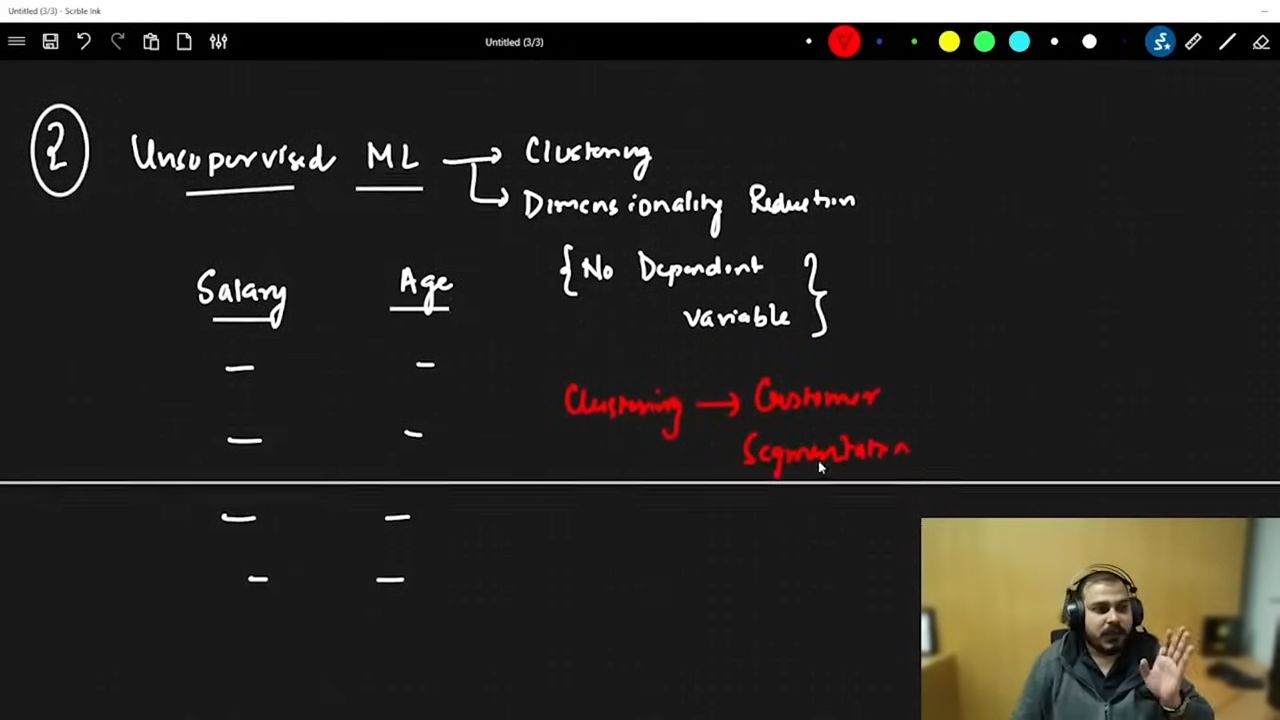 Untitled (3/3) - Scrble Ink
Untitled (3/3)
2 Unsupervised ML → Clustering
→ Dimensionality Reduction
Salary Age { No Dependent }
variable
Clustering → Customer
Segmentation